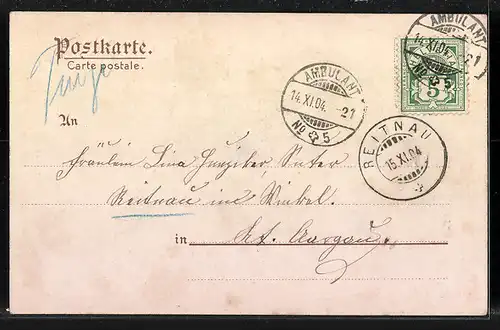 Postkarte.
Carte postale.
AMBULANT
14.XI.04. 21
No 5
AMBULANT
14.XI.04. 21
No 5
5
An
REITNAU
15.XI.04
Fräulein Lina Hunziker, Suter
Reitnau im Winkel.
in Kt. Aargau.